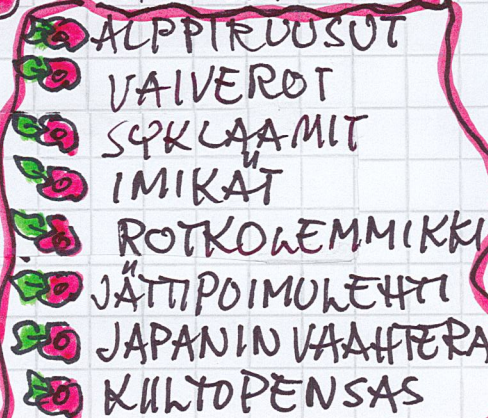 ALPPIRUUSUT
VAIVEROT
SYKLAAMIT
IMIKÄT
ROTKOLEMMIKKI
JÄTTIPOIMULEHTI
JAPANINVAAHTERA
KULTOPENSAS